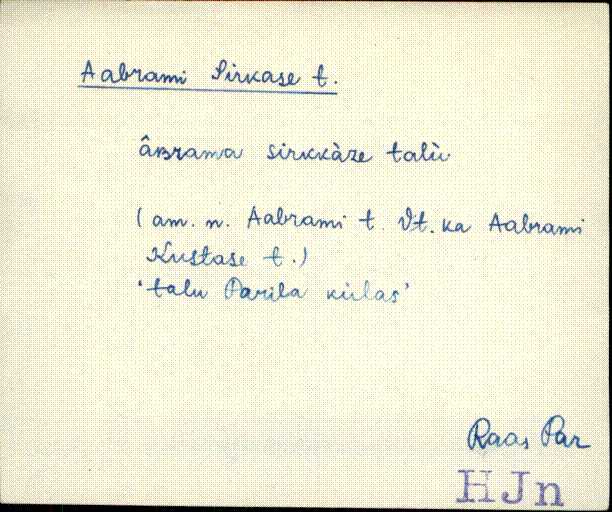 Aabrami Sirkase t.
âʙrama sirkkàze talù
(am. n. Aabrami t. Vt. ka Aabrami
Kustase t.)
'talu Parila külas'
Raas Par
HJn